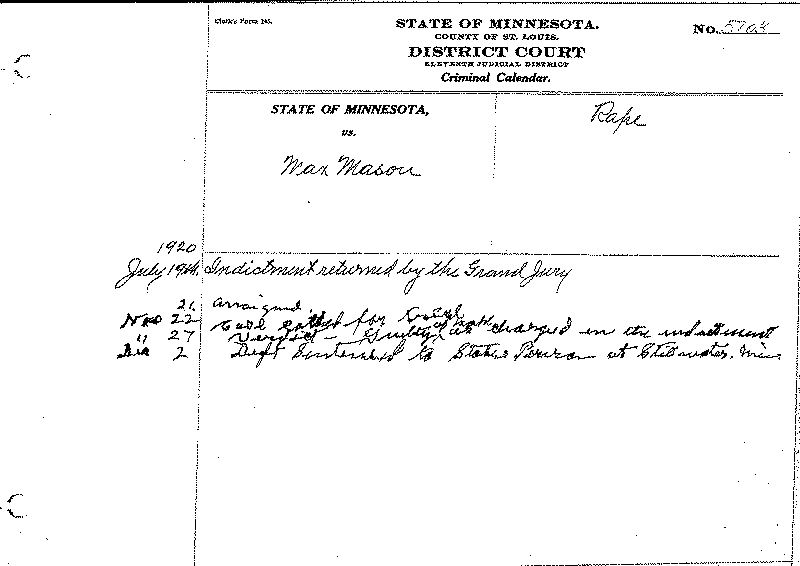 Clerk's Form 245.
STATE OF MINNESOTA.
COUNTY OF ST. LOUIS.
DISTRICT COURT
ELEVENTH JUDICIAL DISTRICT
Criminal Calendar.
No. 5704
STATE OF MINNESOTA,
vs.
Max Mason
Rape
1920
July 19th. Indictment returned by the Grand Jury
21 Arraigned.
Nov 22 Case called for trial
" 27 Verdict - Guilty of rape as charged in the indictment
Dec 2 Deft Sentenced to States Prison at Stillwater, Minn